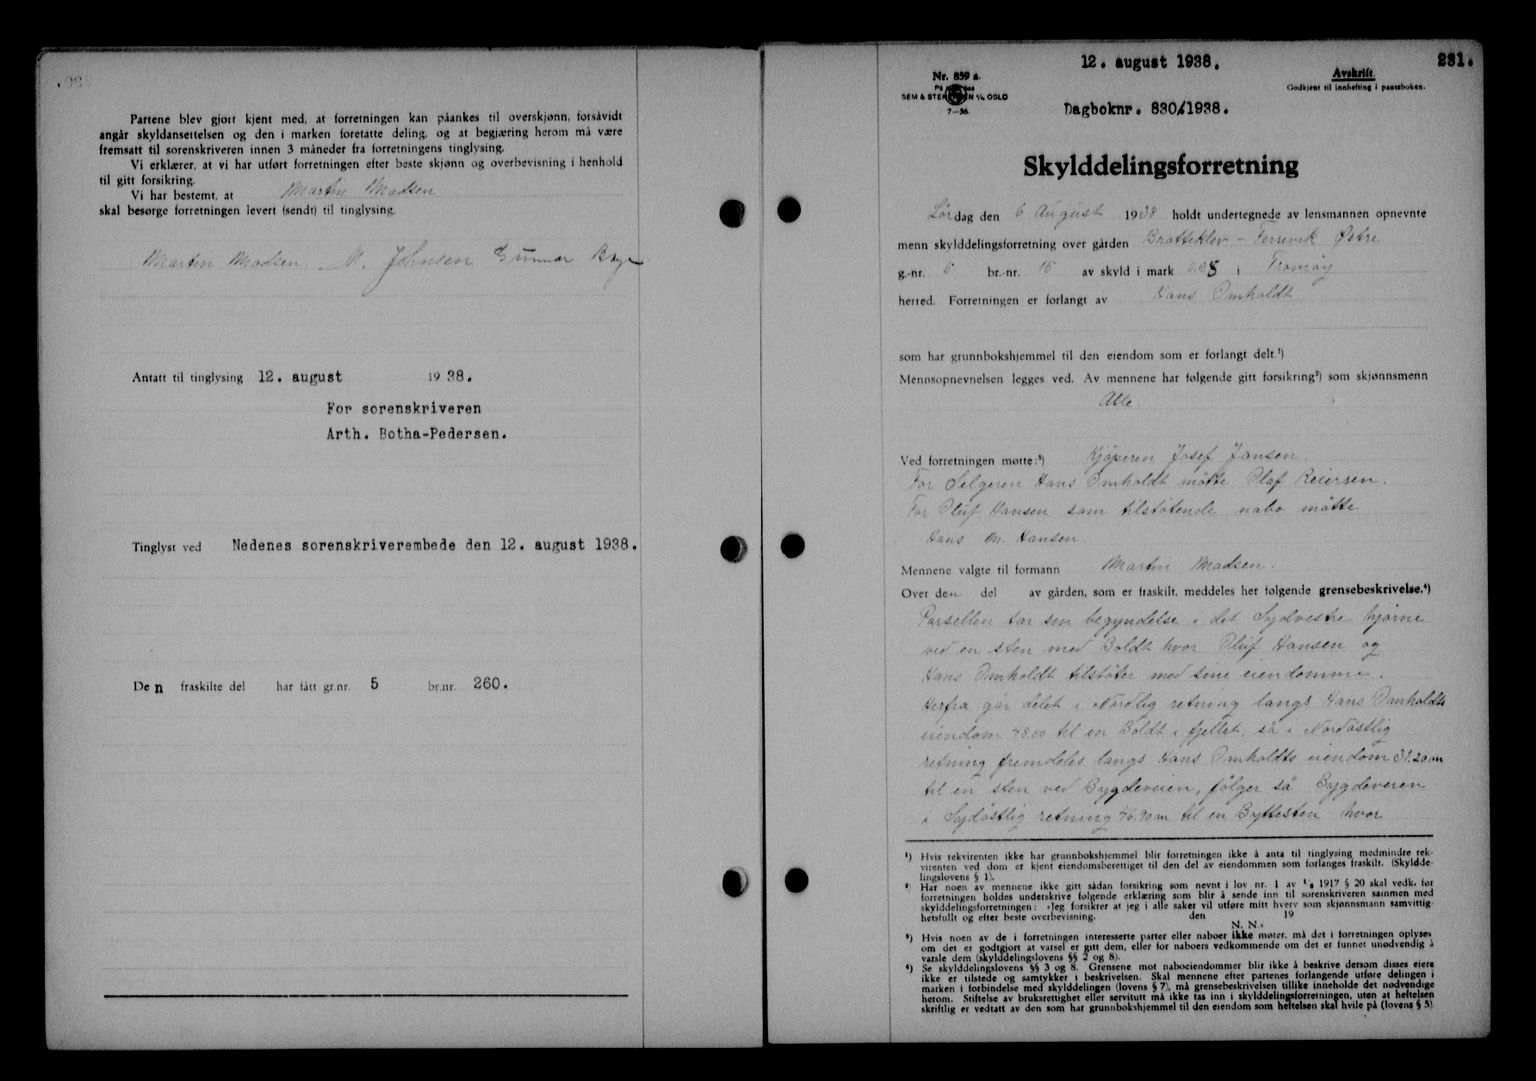 Partene blev gjort kjent med, at forretningen kan påankes til overskjønn, forsåvidt
angår skyldansettelsen og den i marken foretatte deling, og at begjæring herom må være
fremsatt til sorenskriveren innen 3 måneder fra forretningens tinglysing.
Vi erklærer, at vi har utført forretningen efter beste skjønn og overbevisning i henhold
til gitt forsikring.
Vi har bestemt, at Martin Madsen
skal besørge forretningen levert (sendt) til tinglysing.
Martin Madsen. M. Johnsen Gunnar
Antatt til tinglysing 12. august 1938.
For sorenskriveren
Arth. Botha-Pedersen.
Tinglyst ved Nedenes sorenskriverembede den 12. august 1938.
Den fraskilte del har fått gr.nr. 5 br.nr. 260.
12. august 1938. 231.
Nr. 859 a. Avskrift.
Godkjent til innhefting i panteboken.
SEM & OSLO
7-36
Dagboknr. 830/1938.
Skylddelingsforretning
Lørdag den 6 August 1938 holdt undertegnede av lensmannen opnevnte
menn skylddelingsforretning over gården Bratteklev - Færevik Østre
g.-nr. 5 br.-nr. 15 av skyld i mark i Tromøy
herred. Forretningen er forlangt av Hans Omholdt
som har grunnbokshjemmel til den eiendom som er forlangt delt.¹)
Mennsopnevnelsen legges ved. Av mennene har følgende gitt forsikring²) som skjønnsmenn
Alle.
Ved forretningen møtte:³) Kjøperen Josef Jansen.
For Selgeren Hans Omholdt møtte Olaf Reiersen.
For Oluf Hansen som tilstøtende nabo møtte
Hans M. Hansen
Mennene valgte til formann Martin Madsen.
Over den del av gården, som er fraskilt, meddeles her følgende grensebeskrivelse.⁴)
Parsellen tar sin begyndelse i det Sydvestre hjørne
ved en sten med Boldt hvor Oluf Hansen og
Hans Omholdt tilstøter med sine eiendomme.
Herfra går delet i Nordlig retning langs Hans Omholdts
eiendom 78.00 til en Boldt i fjellet, så i Nordøstlig
retning fremdeles langs Hans Omholdts eiendom 31.20 m
til en sten ved Bygdeveien, følger så Bygdeveien
i Sydøstlig retning 46.90 m til en Byttesten hvor
¹) Hvis rekvirenten ikke har grunnbokshjemmel blir forretningen ikke å anta til tinglysing medmindre rek-
virenten ved dom er kjent eiendomsberettiget til den del av eiendommen som forlanges fraskilt. (Skyldde-
lingslovens § 1).
²) Har noen av mennene ikke gitt sådan forsikring som nevnt i lov nr. 1 av ¹/₆ 1917 § 20 skal vedk. før
forretningen holdes underskrive følgende erklæring som blir å sende inn til sorenskriveren sammen med
skylddelingsforretningen: »Jeg forsikrer at jeg i alle saker vil utføre mitt hverv som skjønnsmann samvittig-
hetsfullt og efter beste overbevisning. den 19
N. N.«
³) Hvis noen av de i forretningen interesserte parter eller naboer ikke møter, må det i forretningen oplyses
om det er godtgjort at varsel er gitt dem, eller for naboers vedkommende om det er funnet unødvendig å
varsle dem (skylddelingslovens §§ 2 og 8).
⁴) Se skylddelingslovens §§ 3 og 8. Grensene mot naboeiendommer blir ikke å beskrive dersom disses eiere
ikke er tilstede og samtykker i beskrivelsen. Skal mennene efter partenes forlangende utføre delingen i
marken i forbindelse med skylddelingen (lovens § 7), må grensebeskrivelsen tillike inneholde det nødvendige
herom. Stiftelse av bruksrettighet eller servitutt må ikke tas inn i skylddelingsforretningen, uten at heftelsen
skriftlig er vedtatt av den som har grunnbokshjemmel til den eiendom som heftelsen skal hvile på (lovens § 5)